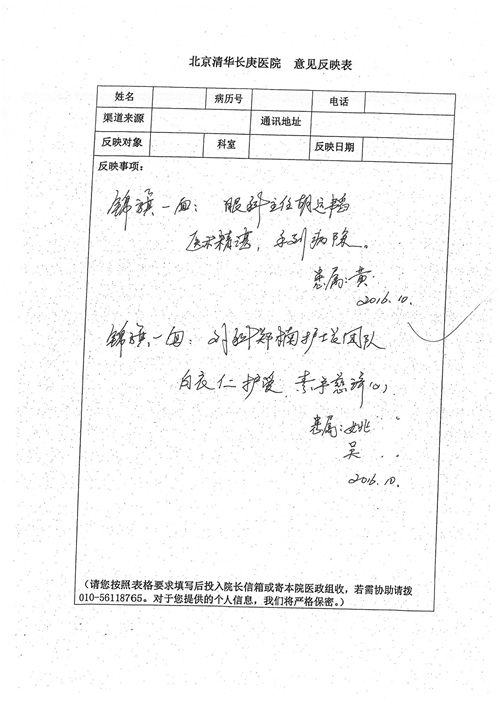 北京清华长庚医院 意见反映表
姓名 病历号 电话
渠道来源 通讯地址
反映对象 科室 反映日期
反映事项：
锦旗一面：眼科主任胡运韬
医术精湛，手到病除。
患属：黄
2016.10.
锦旗一面：郑楠护士及团队
白衣仁护爱
患属：姚
吴
2016.10.
（请您按照表格要求填写后投入院长信箱或寄本院医政组收，若需协助请拨
010-56118765。对于您提供的个人信息，我们将严格保密。）